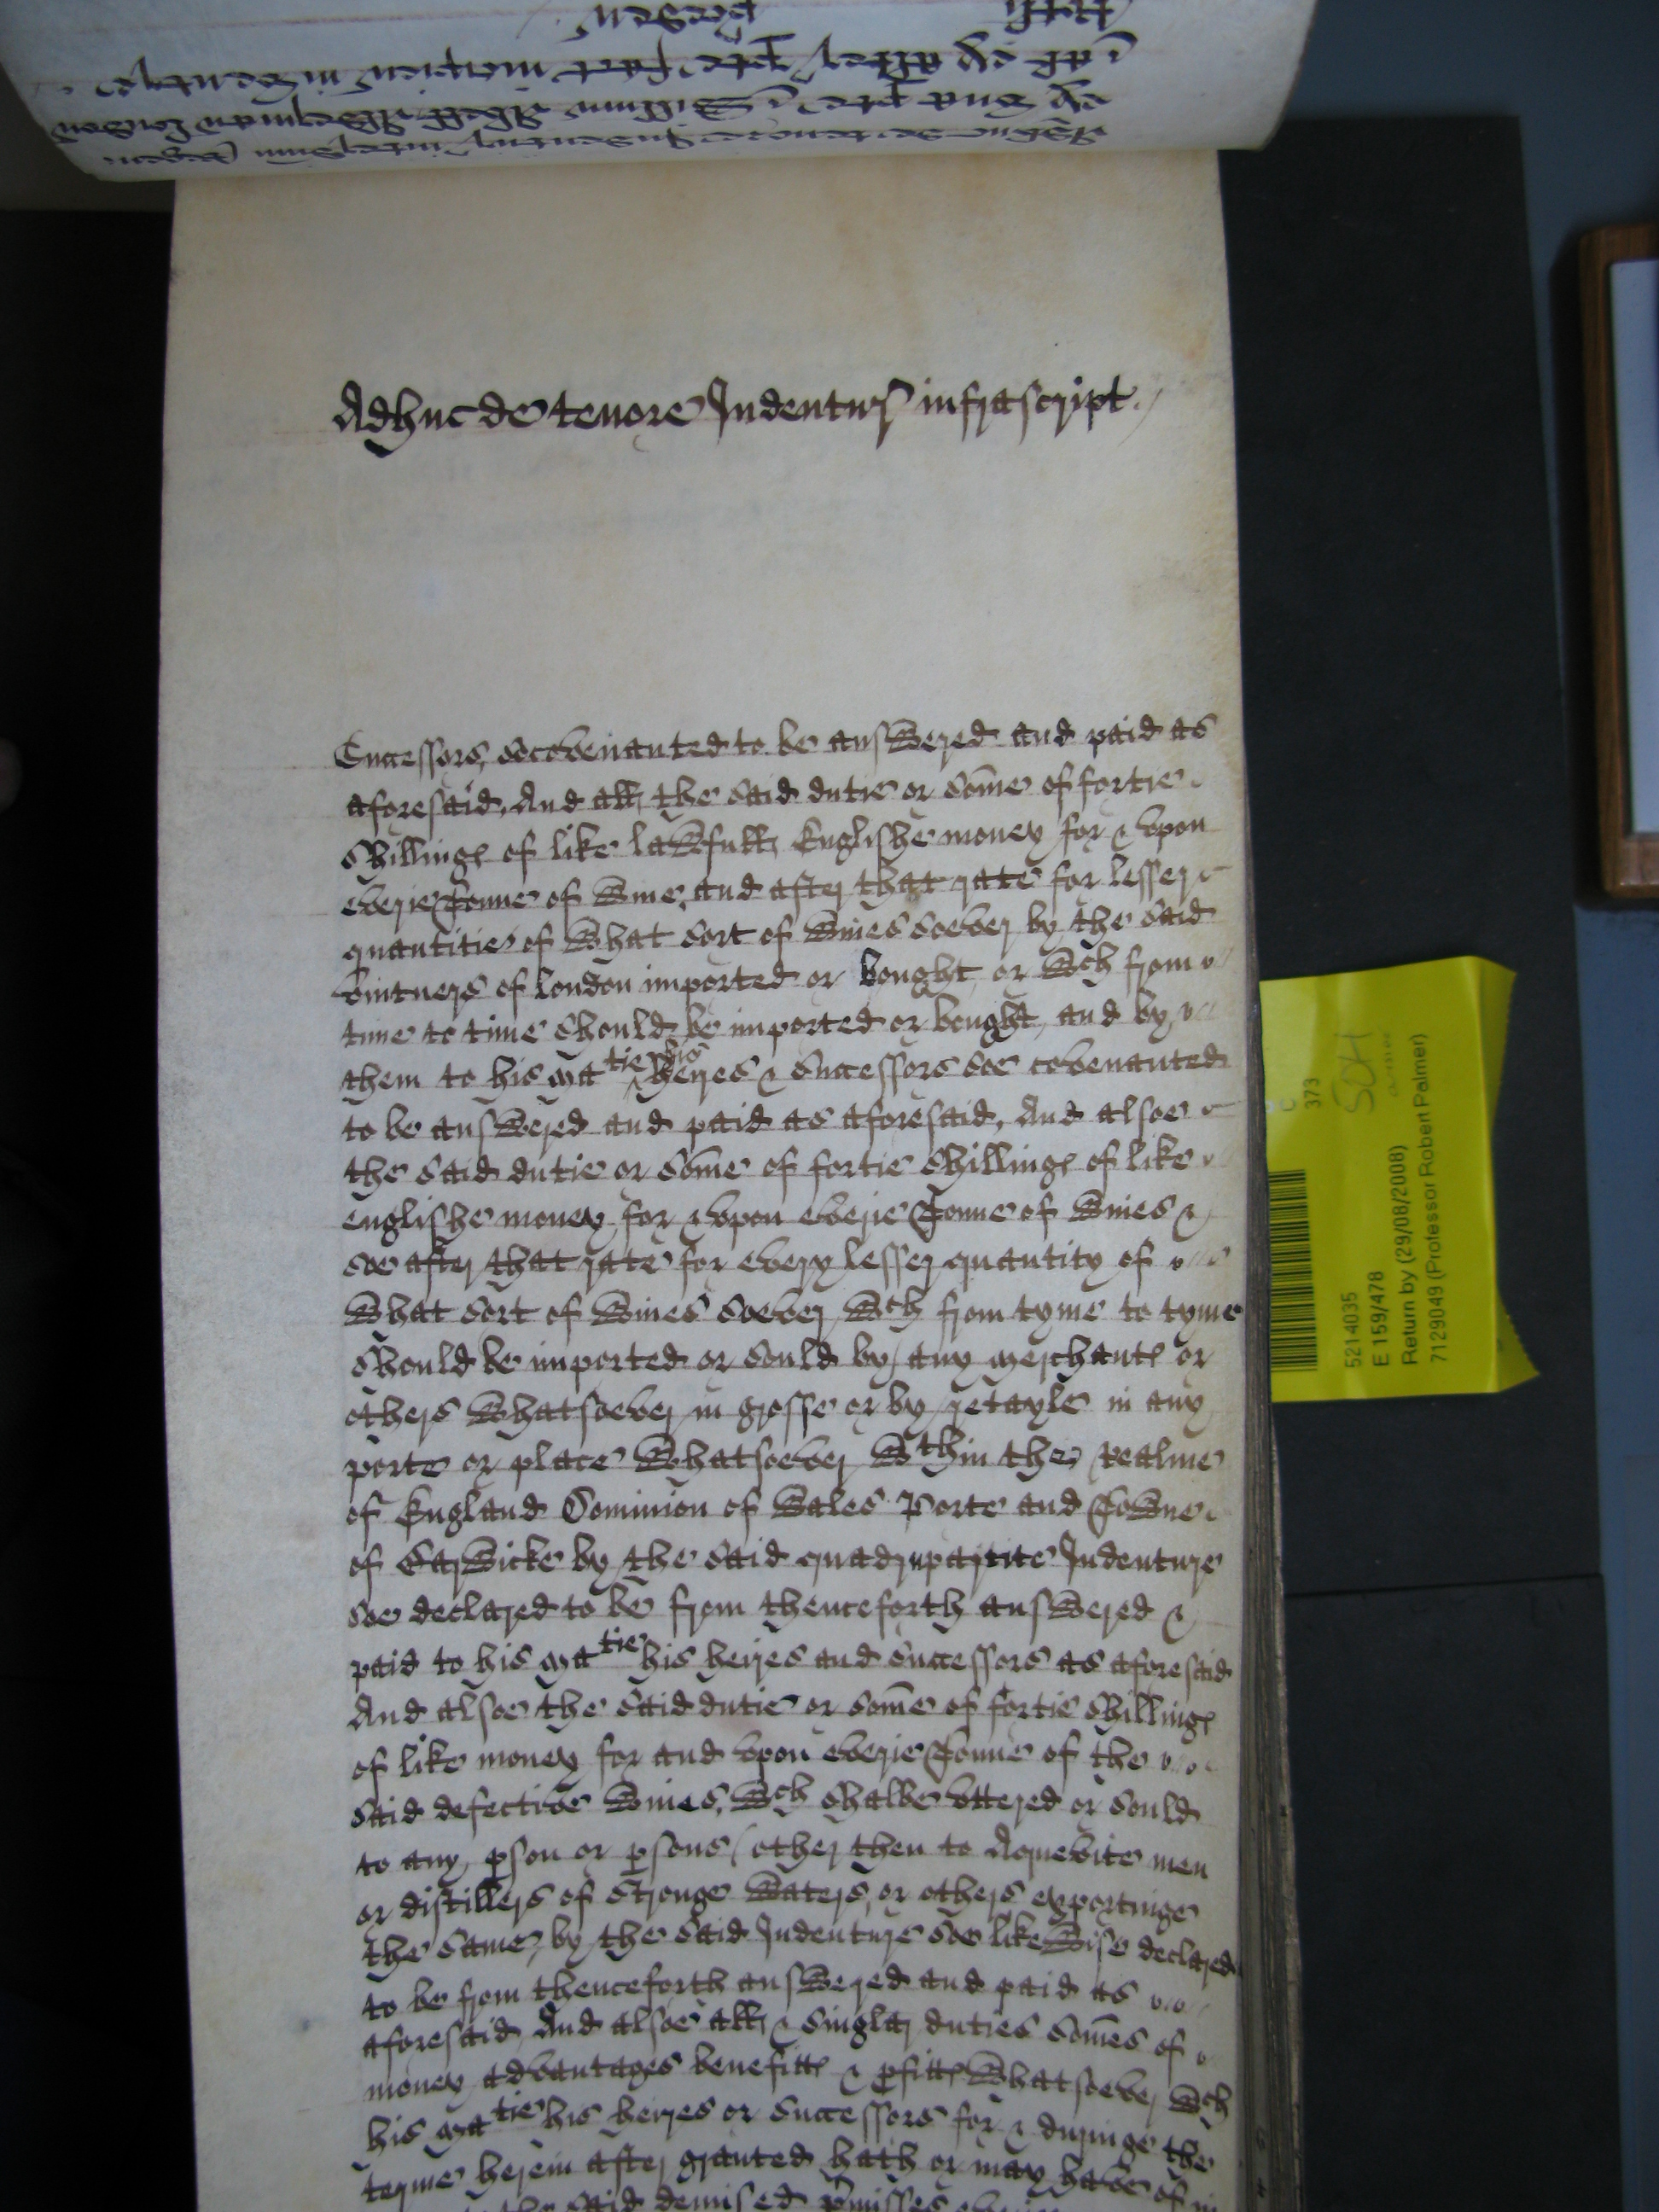 Adhuc de tenore Indentur infrascript.
Successors, so covenanted to be answered and paid as
aforesaid, And all the said dutie or some of fortie
shillings of like lawfull Englishe money for & vpon
everie Tonne of wine, and after that rate for lesser
quantitie of what sort of wines soever by the said
vintners of London imported or bought, or wch from
time to time should be imported or bought, and by
them to his Matie his heires & successors soe covenanted
to be answered and paid as aforesaid, And alsoe
the said dutie or some of fortie shillings of like
englishe money for & vpon everie Tonne of wines &
soe after that rate for every lesser quantity of
what sort of wines soever, wch from tyme to tyme
should be imported or sould by any merchants or
others whatsoever in grosse or by retayle in any
porte or place whatsoever wthin the Realme
of England Dominion of Wales Porte and Towne
of Barwicke by the said quadrupartite Indenture
soe declared to be from thenceforth answered &
paid to his Matie his heires and successors as aforesaid
And alsoe the said dutie or some of fortie shillings
of like money for and vpon everie Tonne of the
said defective wines, wch shalbe vttered or sould
to any pson or psons (other then to Aquevite men
or distillers of stronge waters, or others exportinge
the same, by the said Indenture soe likewise declared
to be from thenceforth answered and paid as
aforesaid, And alsoe all & singlar duties somes of
money advantages benefitts & pfitts whatsoever wch
his Matie his heires or successors for & duringe the
terme herein after granted hath or may have of in
the said demised pmisses
5214035
E 159/478
Return by (29/08/2008)
7129049 (Professor Robert Palmer)
373